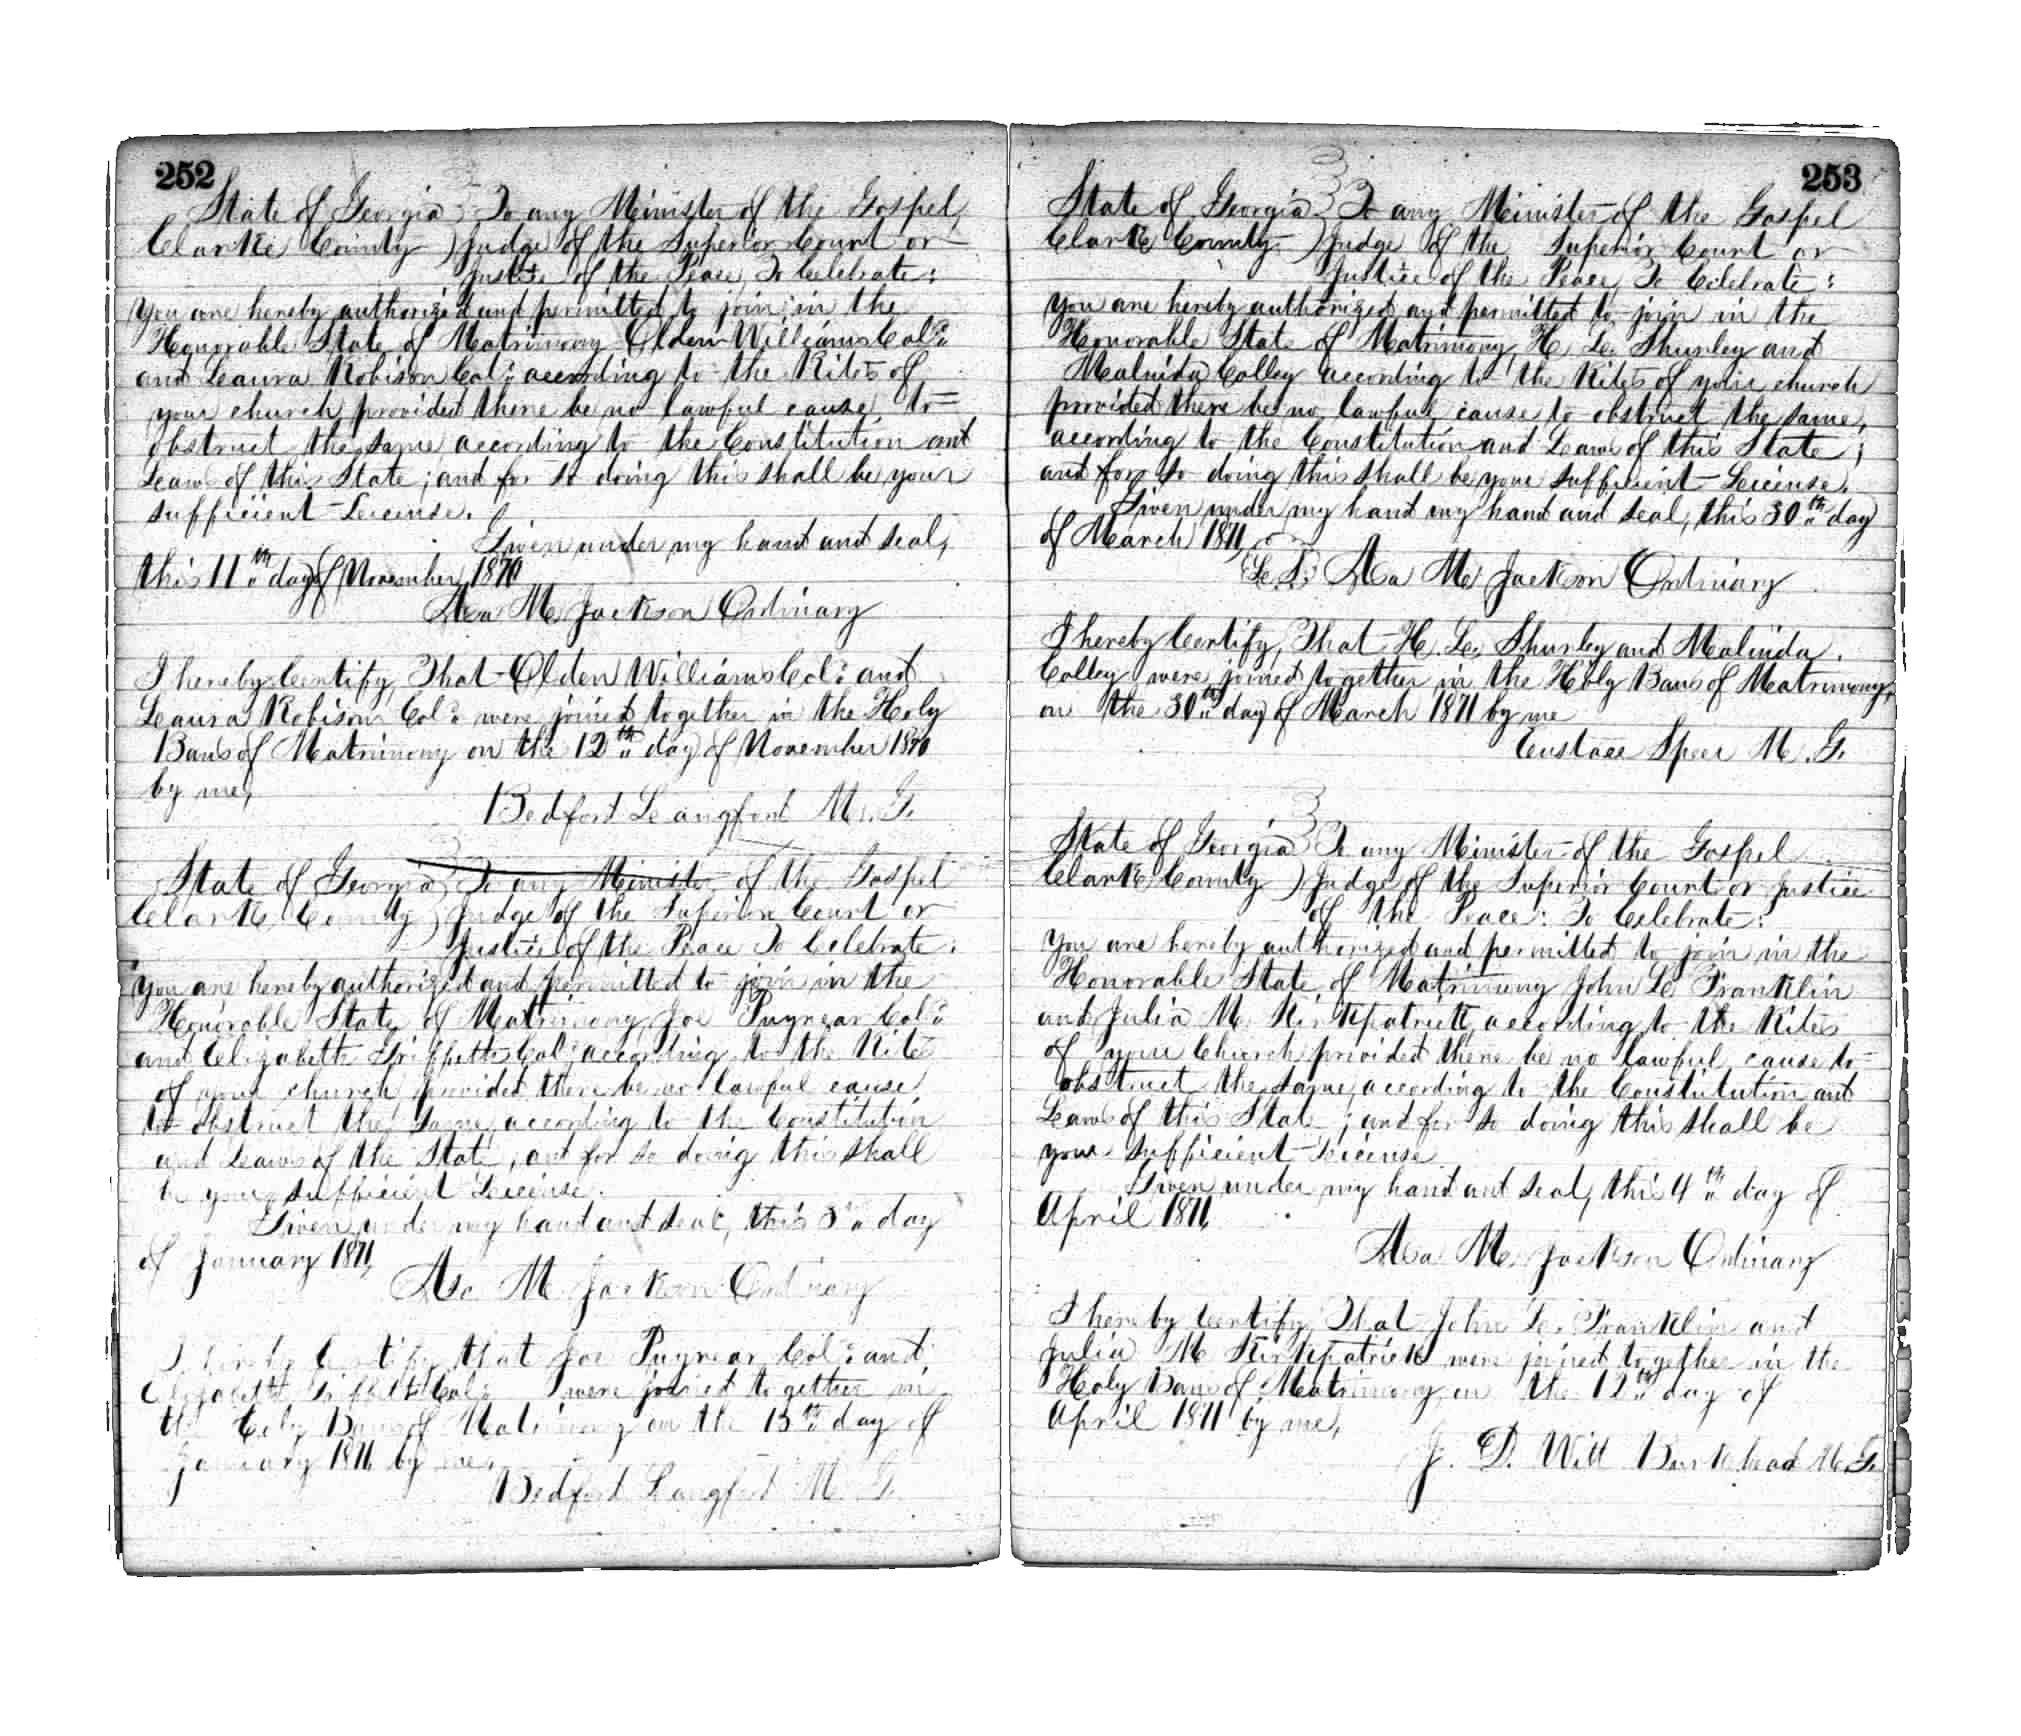 252
State of Georgia } To any Minister of the Gospel,
Clarke County } Judge of the Superior Court or
Justice of the Peace, To Celebrate:
You are hereby authorized and permitted to join in the
Honorable State of Matrimony Olden Williams Col:
and Laura Robison Col: according to the Rites of
your church, provided there be no lawful cause to
obstruct the same according to the Constitution and
Laws of this State; and for so doing this shall be your
sufficient License.
Given under my hand and seal,
this 11th day of November 1870
Asa M. Jackson Ordinary
I hereby Certify, That Olden Williams Col: and
Laura Robison Col: were joined together in the Holy
Bans of Matrimony on the 12th day of November 1870
by me,
Bedford Langford M. G.
State of Georgia } To any Minister of the Gospel
Clarke County } Judge of the Superior Court or
Justice of the Peace To Celebrate:
You are hereby authorized and permitted to join in the
Honorable State of Matrimony Joe Puryear Col:
and Elizabeth Griffeth Col: according to the Rites
of your church, provided there be no lawful cause
to obstruct the same, according to the Constitution
and Laws of the State, and for so doing this shall
be your sufficient License.
Given under my hand and seal, this 3" day
of January 1871,
Asa M. Jackson Ordinary
I hereby Certify that Joe Puryear Col: and
Elizabeth Griffeth Col: were joined together in
the Holy Bans of Matrimony on the 13th day of
January 1871 by me,
Bedford Langford M. G.
253
State of Georgia } To any Minister of the Gospel
Clarke County } Judge of the Superior Court or
Justice of the Peace, To Celebrate:
You are hereby authorized and permitted to join in the
Honorable State of Matrimony, H. L. Shurley and
Malinda Colley according to the Rites of your church
provided there be no lawful cause to obstruct the same,
according to the Constitution and Laws of this State;
and for so doing this shall be your sufficient License.
Given under my hand my hand and seal, this 30th day
of March 1871,
(L. S.) Asa M. Jackson Ordinary
I hereby Certify, That H. L. Shurley and Malinda
Colley were joined together in the Holy Bans of Matrimony,
on the 30th day of March 1871 by me
Eustace Speer M. G.
State of Georgia } To any Minister of the Gospel
Clarke County } Judge of the Superior Court or Justice
of the Peace: To Celebrate:
You are hereby authorized and permitted to join in the
Honorable State of Matrimony John L. Franklin
and Julia M. Kirkpatrick, according to the Rites
of your Church provided there be no lawful cause to
obstruct the same, according to the Constitution and
Laws of this State; and for so doing this shall be
your sufficient License
Given under my hand and seal, this 4th day of
April 1871,
Asa M. Jackson Ordinary
I hereby Certify, That John L. Franklin and
Julia M Kirkpatrick were joined together in the
Holy Bans of Matrimony on the 12th day of
April 1871 by me,
J. D. Will Burkhead M. G.